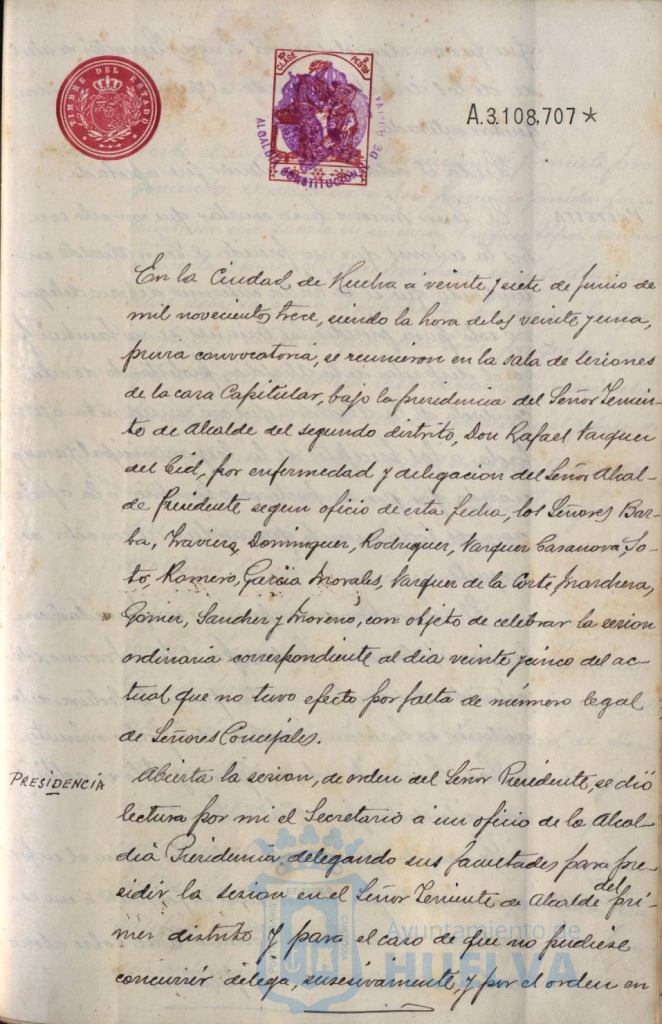 TIMBRE DEL ESTADO
CLASE
PESTAS
ALCALDIA CONSTITUCIONAL DE HUELVA
A.3.108,707 *
En la Ciudad de Huelva á veinte y siete de Junio de
mil novecientos trece, siendo la hora de las veinte y una,
previa convocatoria, se reunieron en la sala de sesiones
de la casa Capitular, bajo la presidencia del Señor Tenien-
to de Alcalde del segundo distrito, Don Rafael Vazquez
del Cid, por enfermedad y delegacion del Señor Alcal-
de Presidente segun oficio de esta fecha, los Señores Bar-
ba, Traviera, Dominguez, Rodriguez, Vazquez Casanova, So-
to, Romero, Garcia Morales, Vazquez de la Corte, Marchena,
Gomez, Sanchez y Moreno, con objeto de celebrar la sesion
ordinaria correspondiente al dia veinte y cinco del ac-
tual que no tuvo efecto por falta de número legal
de Señores Concejales.
PRESIDENCIA
Abierta la sesion, de orden del Señor Presidente, se dió
lectura por mi el Secretario á un oficio de la Alcal-
dia Presidencia delegando sus facultades para pre-
sidir la sesion en el Señor Teniente de Alcalde del pri-
mer distrito y para el caso de que no pudiese
concurrir delega, susesivamente, y por el orden en
Ayuntamiento de
HUELVA